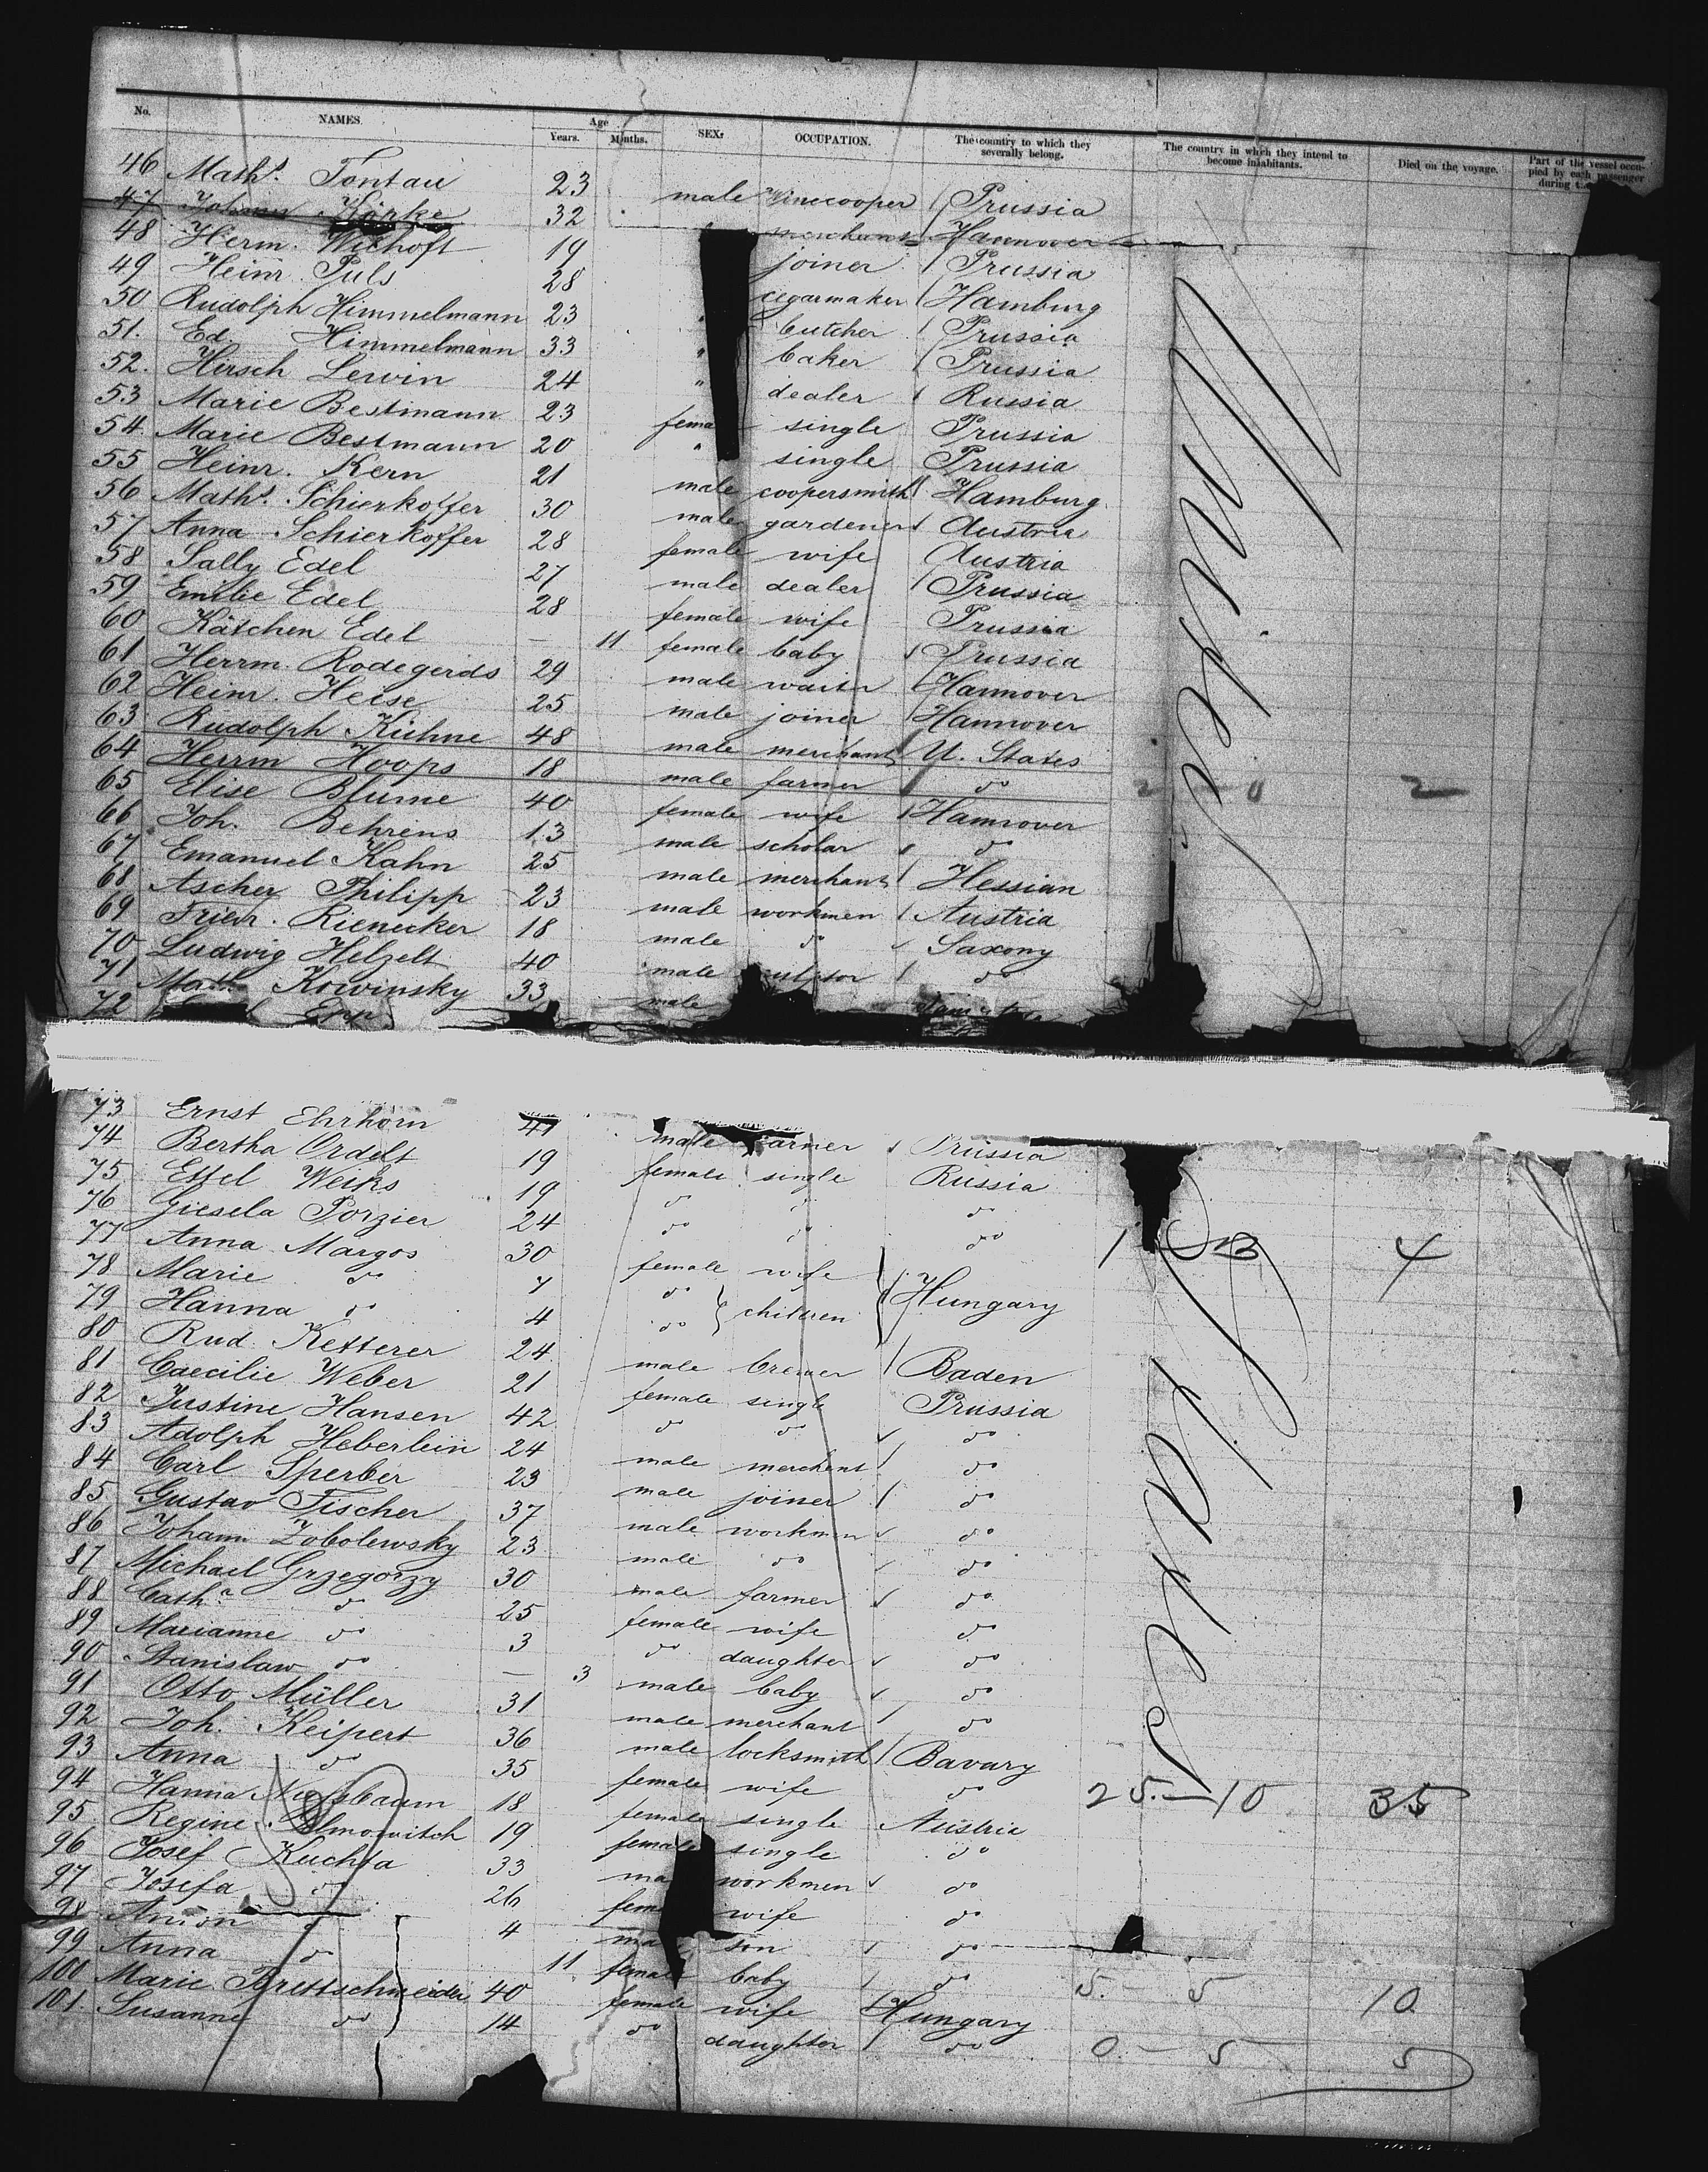 No. NAMES. Age Years. Months. SEX: OCCUPATION. The country to which they severally belong. The country in which they intend to become inhabitants. Died on the voyage. Part of the vessel occupied by each passenger during
46 Maths. Tontau 23 male Winecooper Prussia
47 Johann 32 " merchant Hannover
48 Herm. Wichoft 19 joiner Prussia
49 Heinr. Puls 28 cigarmaker Hamburg
50 Rudolph Himmelmann 23 butcher Prussia
51. Ed. Himmelmann 33 " baker Prussia
52. Hirsch Lewin 24 " dealer Russia
53 Marie Bestmann 23 fema single Prussia
54. Marie Bestmann 20 " single Prussia
55 Heinr. Kern 21 male coopersmith Hamburg
56 Maths. Schierkolfer 30 male gardener Austria
57 Anna Schierkoffer 28 female wife Austria
58 Sally Edel 27 male dealer Prussia
59 Emilie Edel 28 female wife Prussia
60 Kätchen Edel — 11 female baby Prussia
61 Herrm. Rodegerds 29 male waiter Hannover
62 Heinr. Heise 25 male joiner Hannover
63 Rudolph Kuhne 48 male merchant U. States
64 Herrm Hoops 18 male farmer do
65 Elise Blume 40 female wife Hannover 2 - 0 2
66 Joh. Behrens 13 male scholar do
67 Emanuel Kahn 25 male merchant Hessian
68 Ascher Philipp 23 male workmen Austria
69 Friedr. Rienecker 18 male do Saxony
70 Ludwig Helzelt 40 male do
71 Kowinsky 33 male
72 Epp
73 Ernst Ehrhorn 41 male farmer Prussia
74 Bertha Ordelt 19 female single Russia
75 Ettel Weiks 19 do do do
76 Giesela Porzier 24 do do do
77 Anna Margos 30 female wife
78 Marie do 7 do children Hungary
79 Hanna do 4 do
80 Rud. Ketterer 24 male brewer Baden
81 Caecilie Weber 21 female single Prussia
82 Justine Hansen 42 do do do
83 Adolph Heberlein 24 male merchant do
84 Carl Sperber 23 male joiner do
85 Gustav Fischer 37 male workmen do
86 Johann Zobolewsky 23 male do do
87 Michael Grzegorzy 30 male farmer do
88 Cathr. do 25 female wife do
89 Marianne do 3 do daughter do
90 Stanislaw do — 3 male baby do
91 Otto Müller 31 male merchant do
92 Joh. Keipert 36 male locksmith Bavary
93 Anna do 35 female wife do
94 Hanna Nussbaum 18 female single Austria 25. — 10 35
95 Regine 19 female single do
96 Josef Kuchta 33 ma workmen do
97 Josefa do 26 fem wife do
98 Anton do 4 ma son do
99 Anna do 11 female baby do
100 Marie Brettschneider 40 female wife Hungary 5. - 5 10
101. Susanne do 14 do daughter do 0. - 5 5